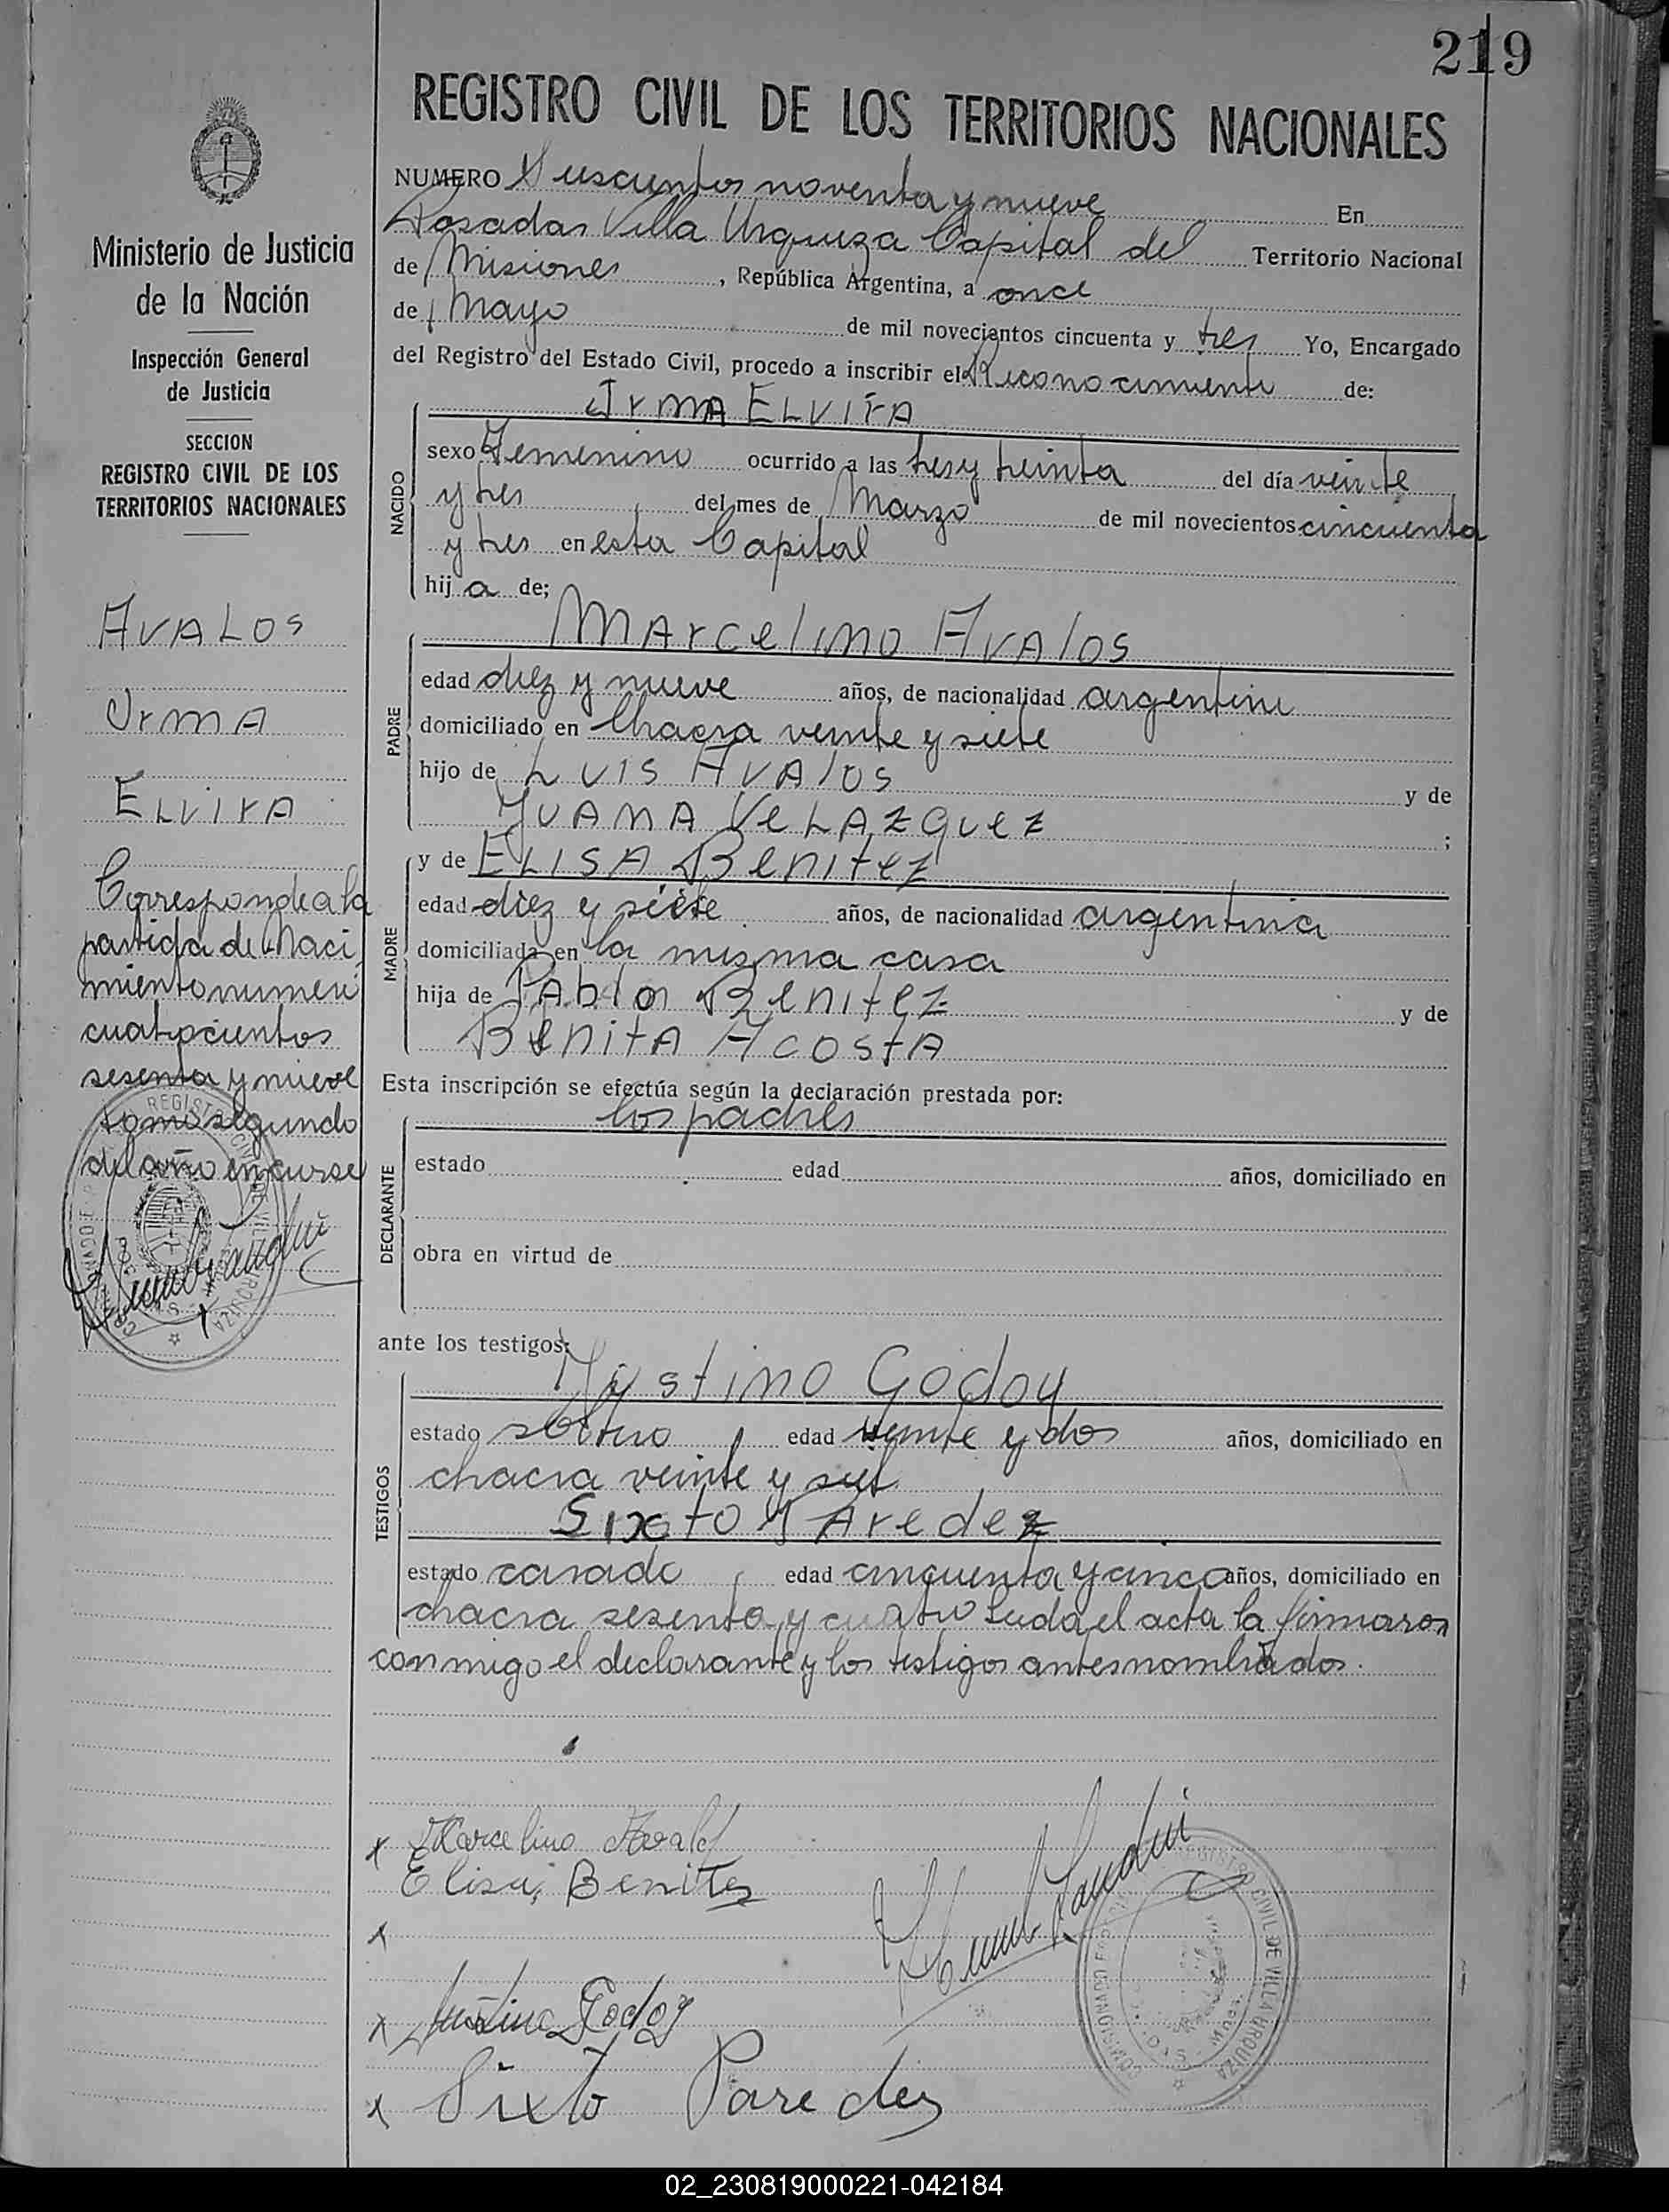 219
REGISTRO CIVIL DE LOS TERRITORIOS NACIONALES
Ministerio de Justicia
de la Nación
Inspección General
de Justicia
SECCION
REGISTRO CIVIL DE LOS
TERRITORIOS NACIONALES
AVALOS
IrMA
ELvirA
Corresponde a la
partida de Naci
miento numero
cuatrocientos
sesenta y nueve
tomo segundo
del año en curso
NUMERO Duscientos noventa y nueve En
Posadas Villa Urquiza Capital del Territorio Nacional
de Misiones, República Argentina, a once
de Mayo de mil novecientos cincuenta y tres Yo, Encargado
del Registro del Estado Civil, procedo a inscribir el Reconocimiento de:
NACIDO
IrMA ELVIrA
sexo Femenino ocurrido a las tres y treinta del día veinte
y tres del mes de Marzo de mil novecientos cincuenta
y tres en esta Capital
hija de;
PADRE
MArcelino AvAlos
edad diez y nueve años, de nacionalidad argentino
domiciliado en Chacra veinte y siete
hijo de Luis AvAlos y de
JUANA VeLAzquez ;
MADRE
y de ELISA Benitez
edad diez y siete años, de nacionalidad argentina
domiciliada en la misma casa
hija de PAblo Benitez y de
BeNitA AcostA
Esta inscripción se efectúa según la declaración prestada por:
los padres
DECLARANTE
estado edad años, domiciliado en
obra en virtud de
ante los testigos:
TESTIGOS
Justino Godoy
estado soltero, edad veinte y dos años, domiciliado en
chacra veinte y siete
Sixto PAredez
estado casado, edad cincuenta y cinco años, domiciliado en
chacra sesenta y cuatro Leida el acta la firmaron
conmigo el declarante y los testigos antes nombrados.
x Marcelino Avalos
Elisa Benitez
x
x Justino Godoy
x Sixto Paredes
REGISTRO CIVIL DE VILLA URQUIZA
02_230819000221-042184